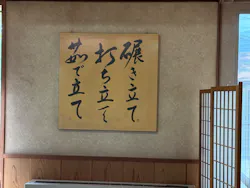 碾き立て
打ち立て
茹で立て